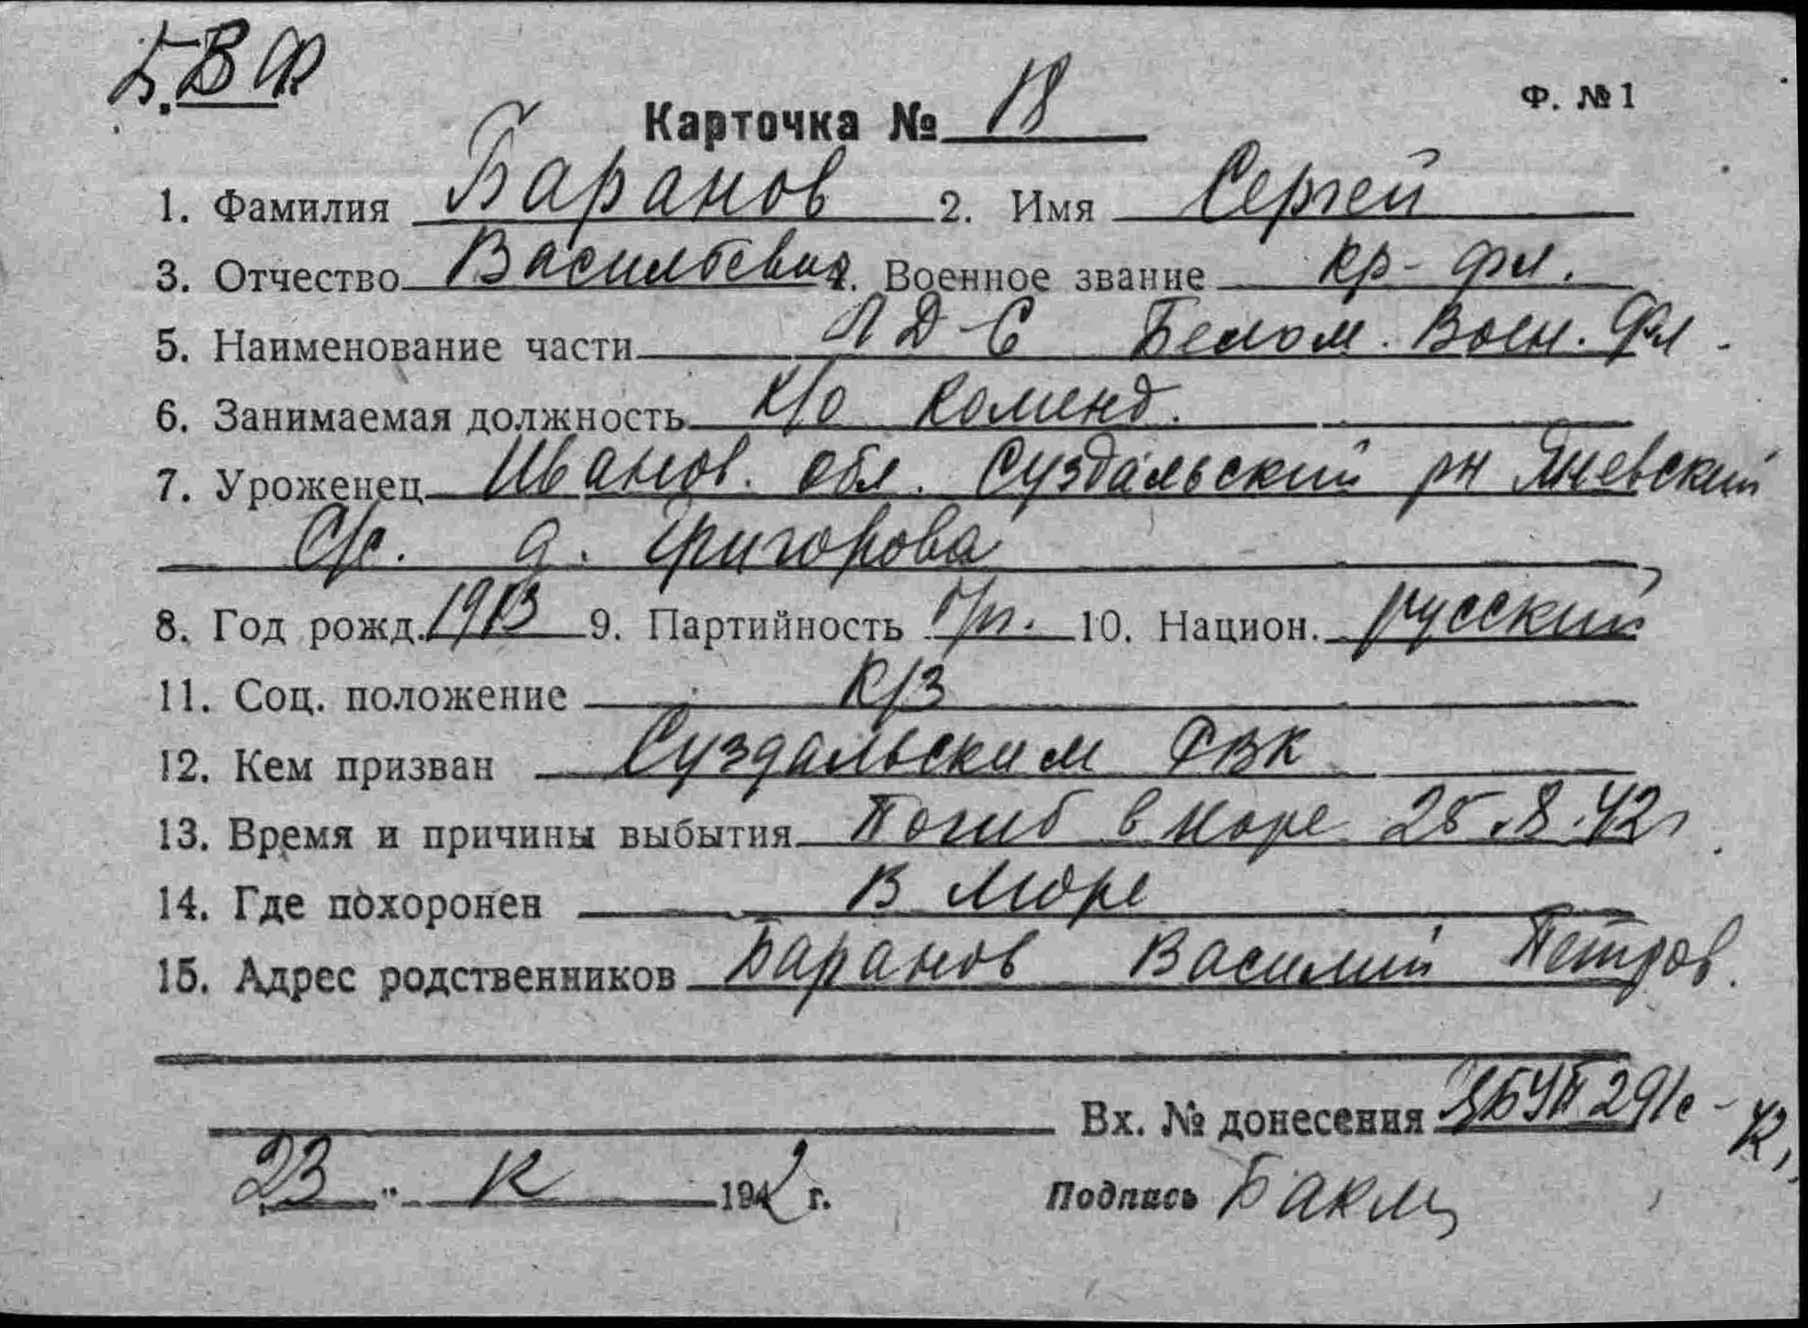 БВФ
Ф. № 1
Карточка № 18
1. Фамилия Баранов 2. Имя Сергей
3. Отчество Васильевич 4. Военное звание кр-фл.
5. Наименование части ЛД-6 Белом. Воен. Фл.
6. Занимаемая должность к/о коменд.
7. Уроженец Иванов. обл. Суздальский рн Яневский
С/с. д. Григорова
8. Год рожд. 1913 9. Партийность б/п. 10. Национ. русский
11. Соц. положение К/З
12. Кем призван Суздальским РВК
13. Время и причины выбытия Погиб в море 25.8.42г
14. Где похоронен В море
15. Адрес родственников Баранов Василий Петров.
Вх. № донесения 291с
23 " 1942 г. Подпись